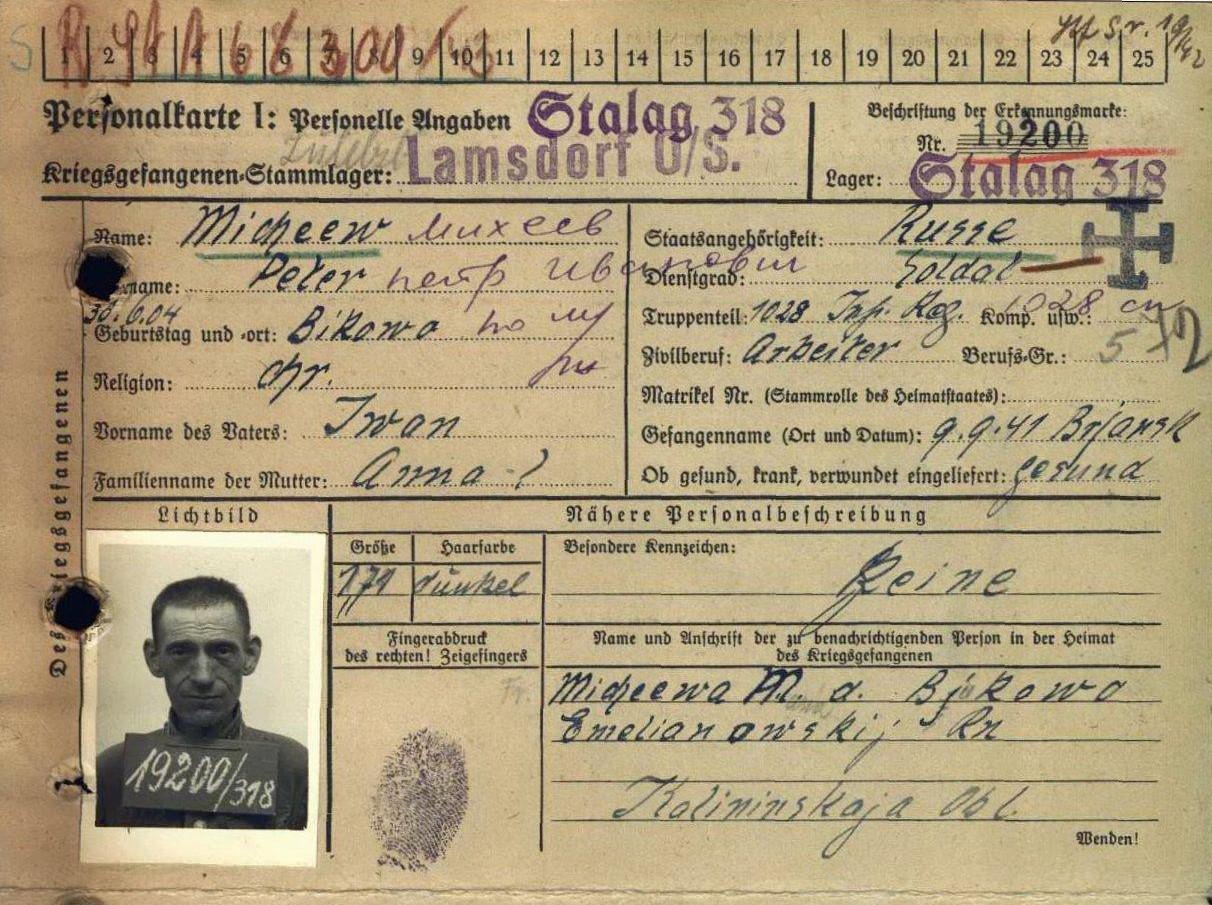 1 2 3 4 5 6 7 8 9 10 11 12 13 14 15 16 17 18 19 20 21 22 23 24 25
Personalkarte I: Personelle Angaben Stalag 318
Kriegsgefangenen-Stammlager: Lamsdorf O/S.
Beschriftung der Erkennungsmarke:
Nr. 19200
Lager: Stalag 318
Des Kriegsgefangenen
Name: Micheew Михеев
Vorname: Peter петр Иванович
30.6.04
Geburtstag und -ort: Bikowo
Religion: chr.
Vorname des Vaters: Iwan
Familienname der Mutter: Anna ?
Staatsangehörigkeit: Russe
Dienstgrad: Soldat
Truppenteil: 1028 Inf. Reg. Komp. usw.: 1028 сп
Zivilberuf: Arbeiter Berufs-Gr.: 5
Matrikel Nr. (Stammrolle des Heimatstaates):
Gefangenname (Ort und Datum): 9.9.41 Brjansk
Ob gesund, krank, verwundet eingeliefert: gesund
Lichtbild
19200/318
Nähere Personalbeschreibung
Größe Haarfarbe Besondere Kennzeichen:
171 dunkel Keine
Fingerabdruck
des rechten! Zeigefingers
Name und Anschrift der zu benachrichtigenden Person in der Heimat
des Kriegsgefangenen
Micheewa M. d. Bikowo
Emelianowskij Rn
Kalininskaja Obl.
Wenden!